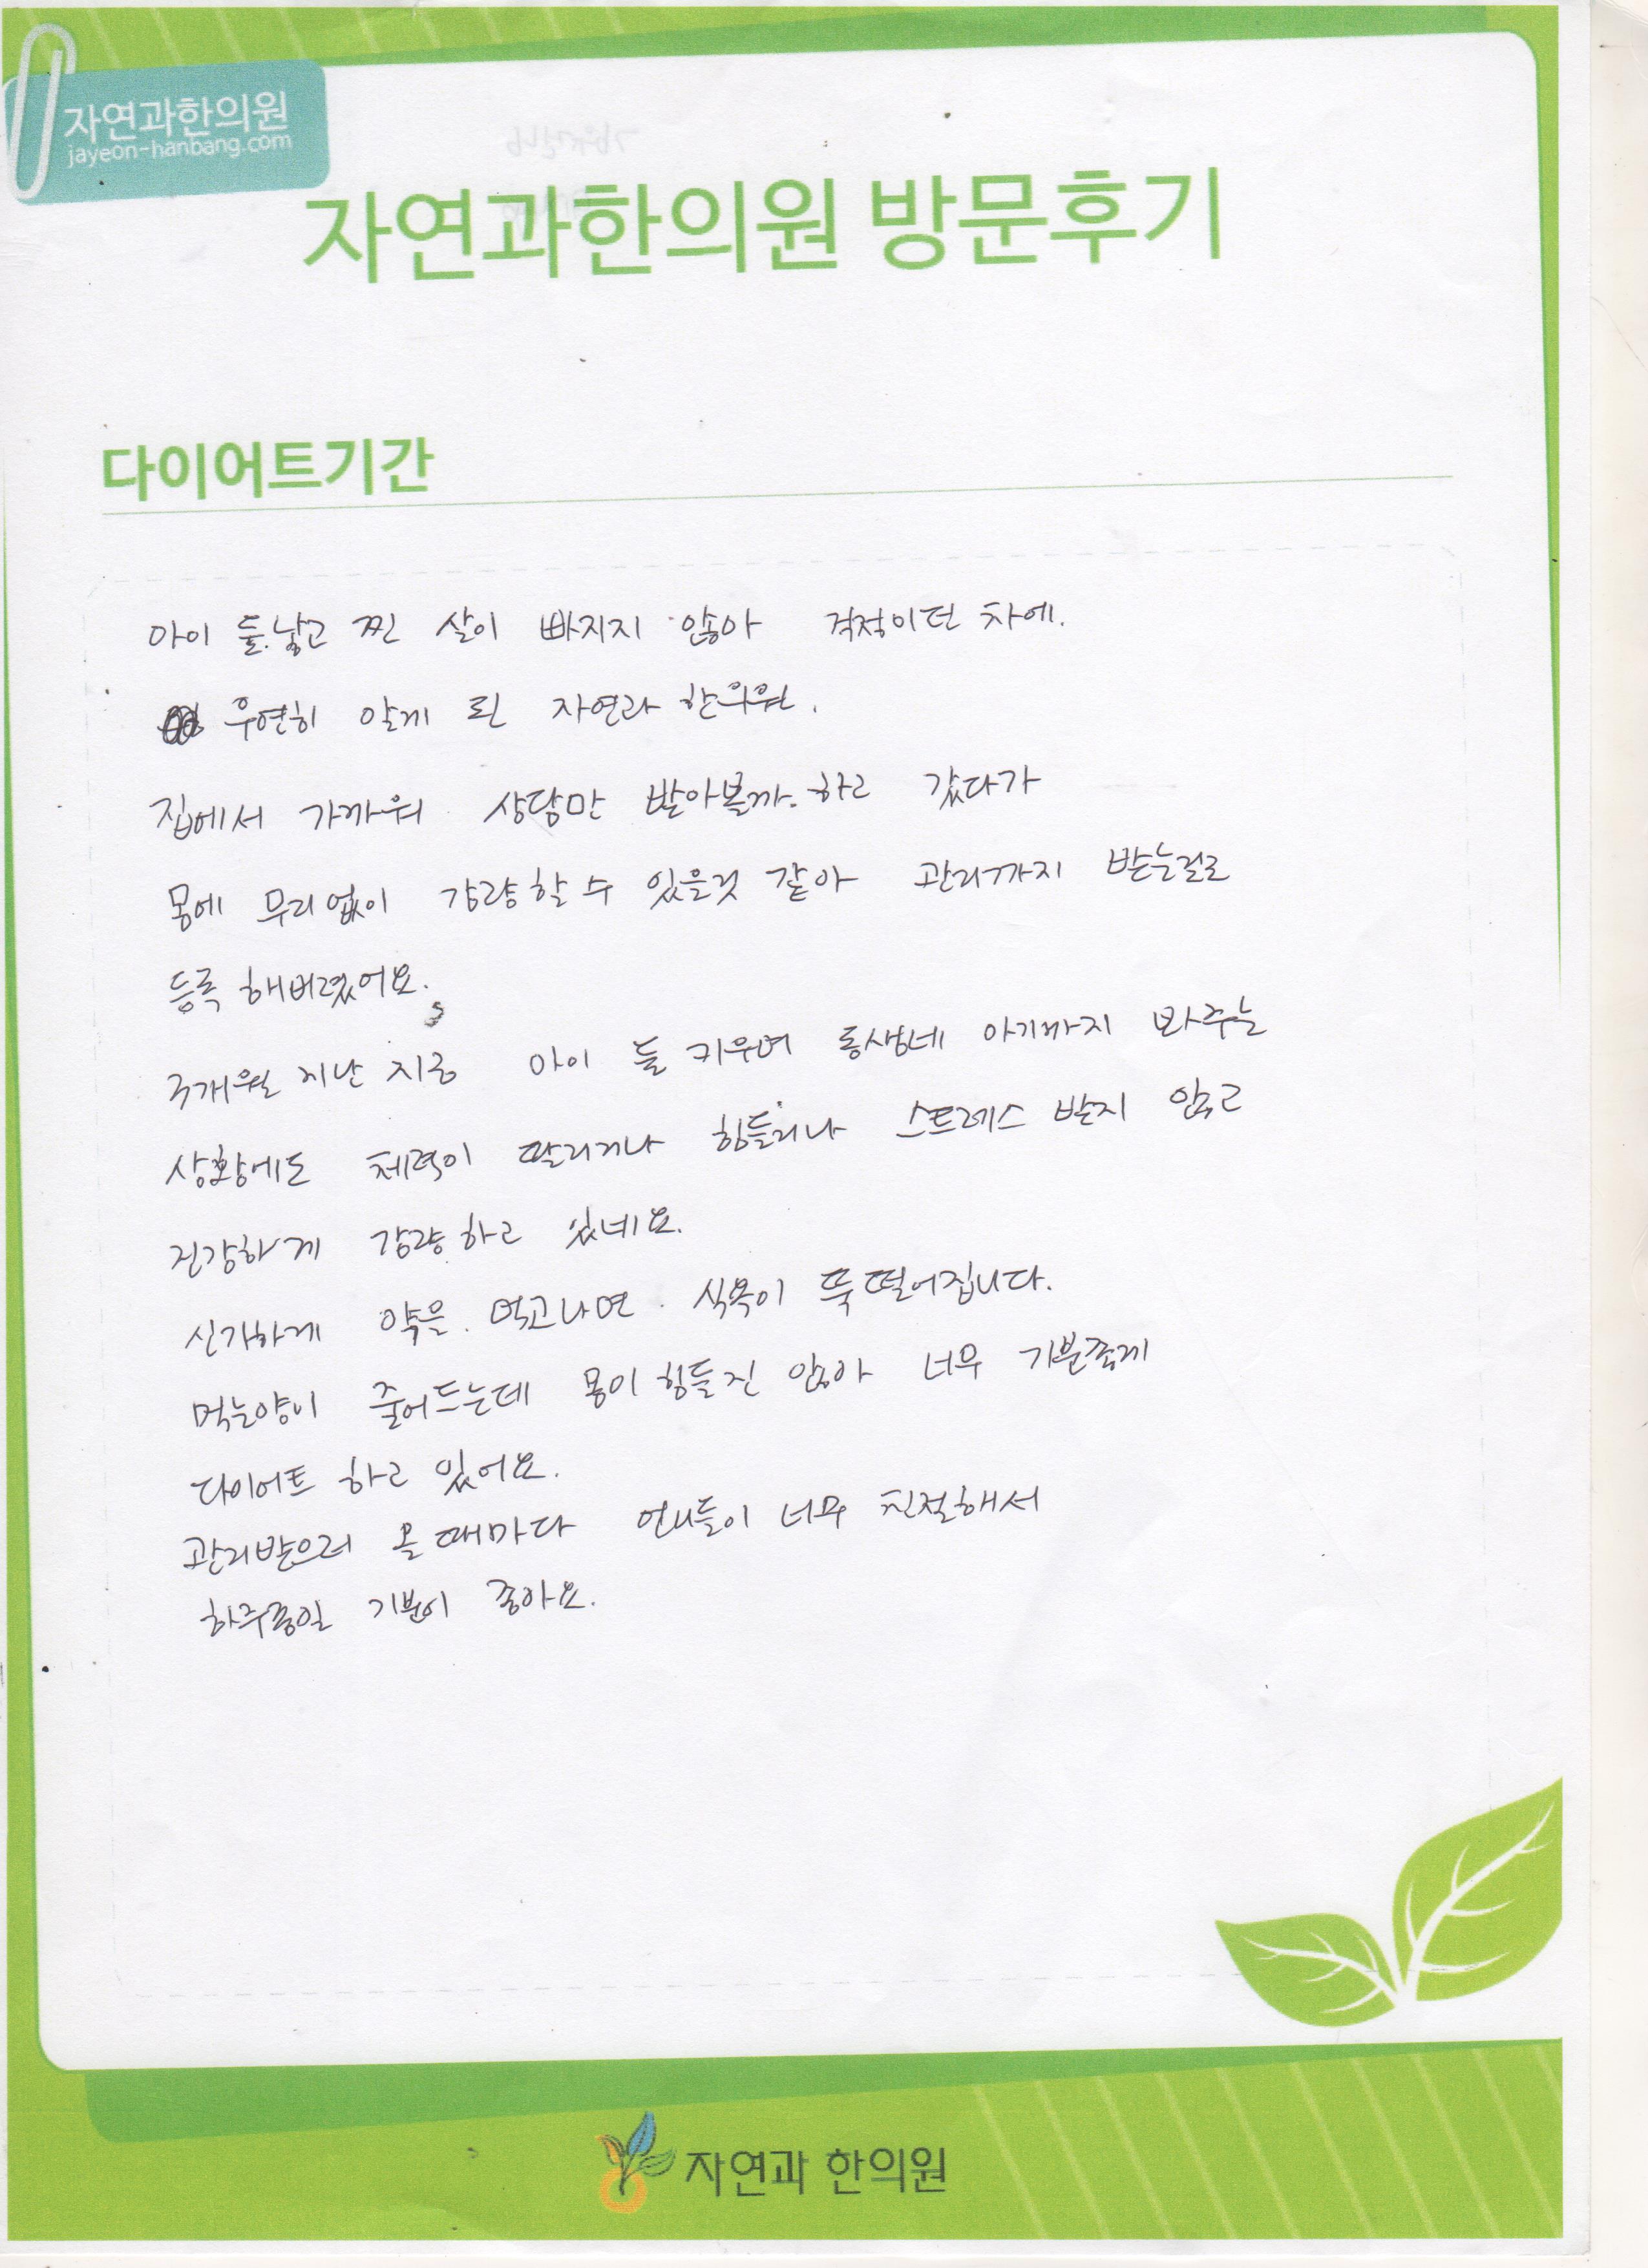 자연과한의원
jayeon-hanbang.com
자연과한의원 방문후기
다이어트기간
아이 둘.낳고 찐 살이 빠지지 않아 걱정이던 차에.
우연히 알게 된 자연과 한의원.
집에서 가까워 상담만 받아볼까.하고 갔다가
몸에 무리없이 감량할 수 있을것 같아 관리까지 받는걸로
등록 해버렸어요.
지난 지금 아이 둘 키우며 동생네 아기까지 봐주는
상황에도 체력이 딸리거나 힘들거나 스트레스 받지 않고
건강하게 감량하고 있네요.
신기하게 약을 먹고나면 식욕이 뚝 떨어집니다.
먹는양이 줄어드는데 몸이 힘들진 않아 너무 기분좋게
다이어트 하고 있어요.
관리받으러 올 때마다 언니들이 너무 친절해서
하루종일 기분이 좋아요.
자연과 한의원